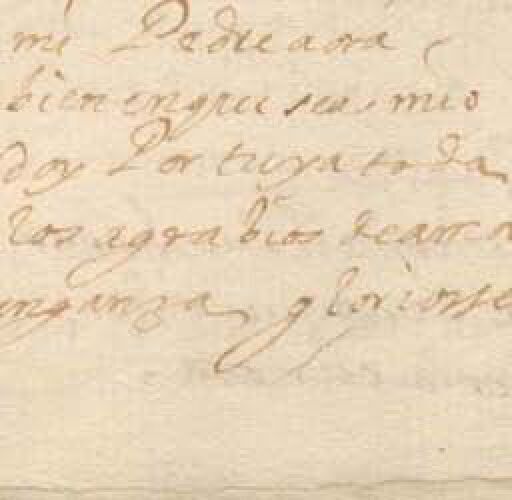 mi Padre aora
bien en que sea mio
doy Por tuya toda
los agrabios de amor
enganza gloriosse